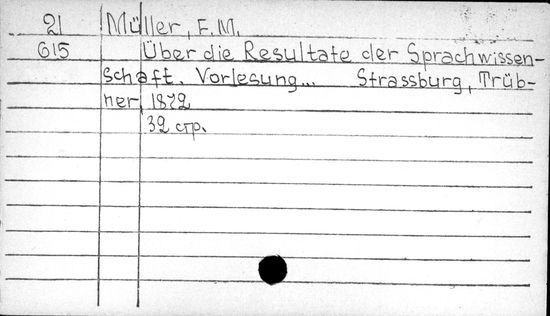 21 Müller, F.M.
615 Über die Resultate der Sprachwissen-
schaft. Vorlesung... Strassburg, Trüb-
ner, 1872
32 стр.